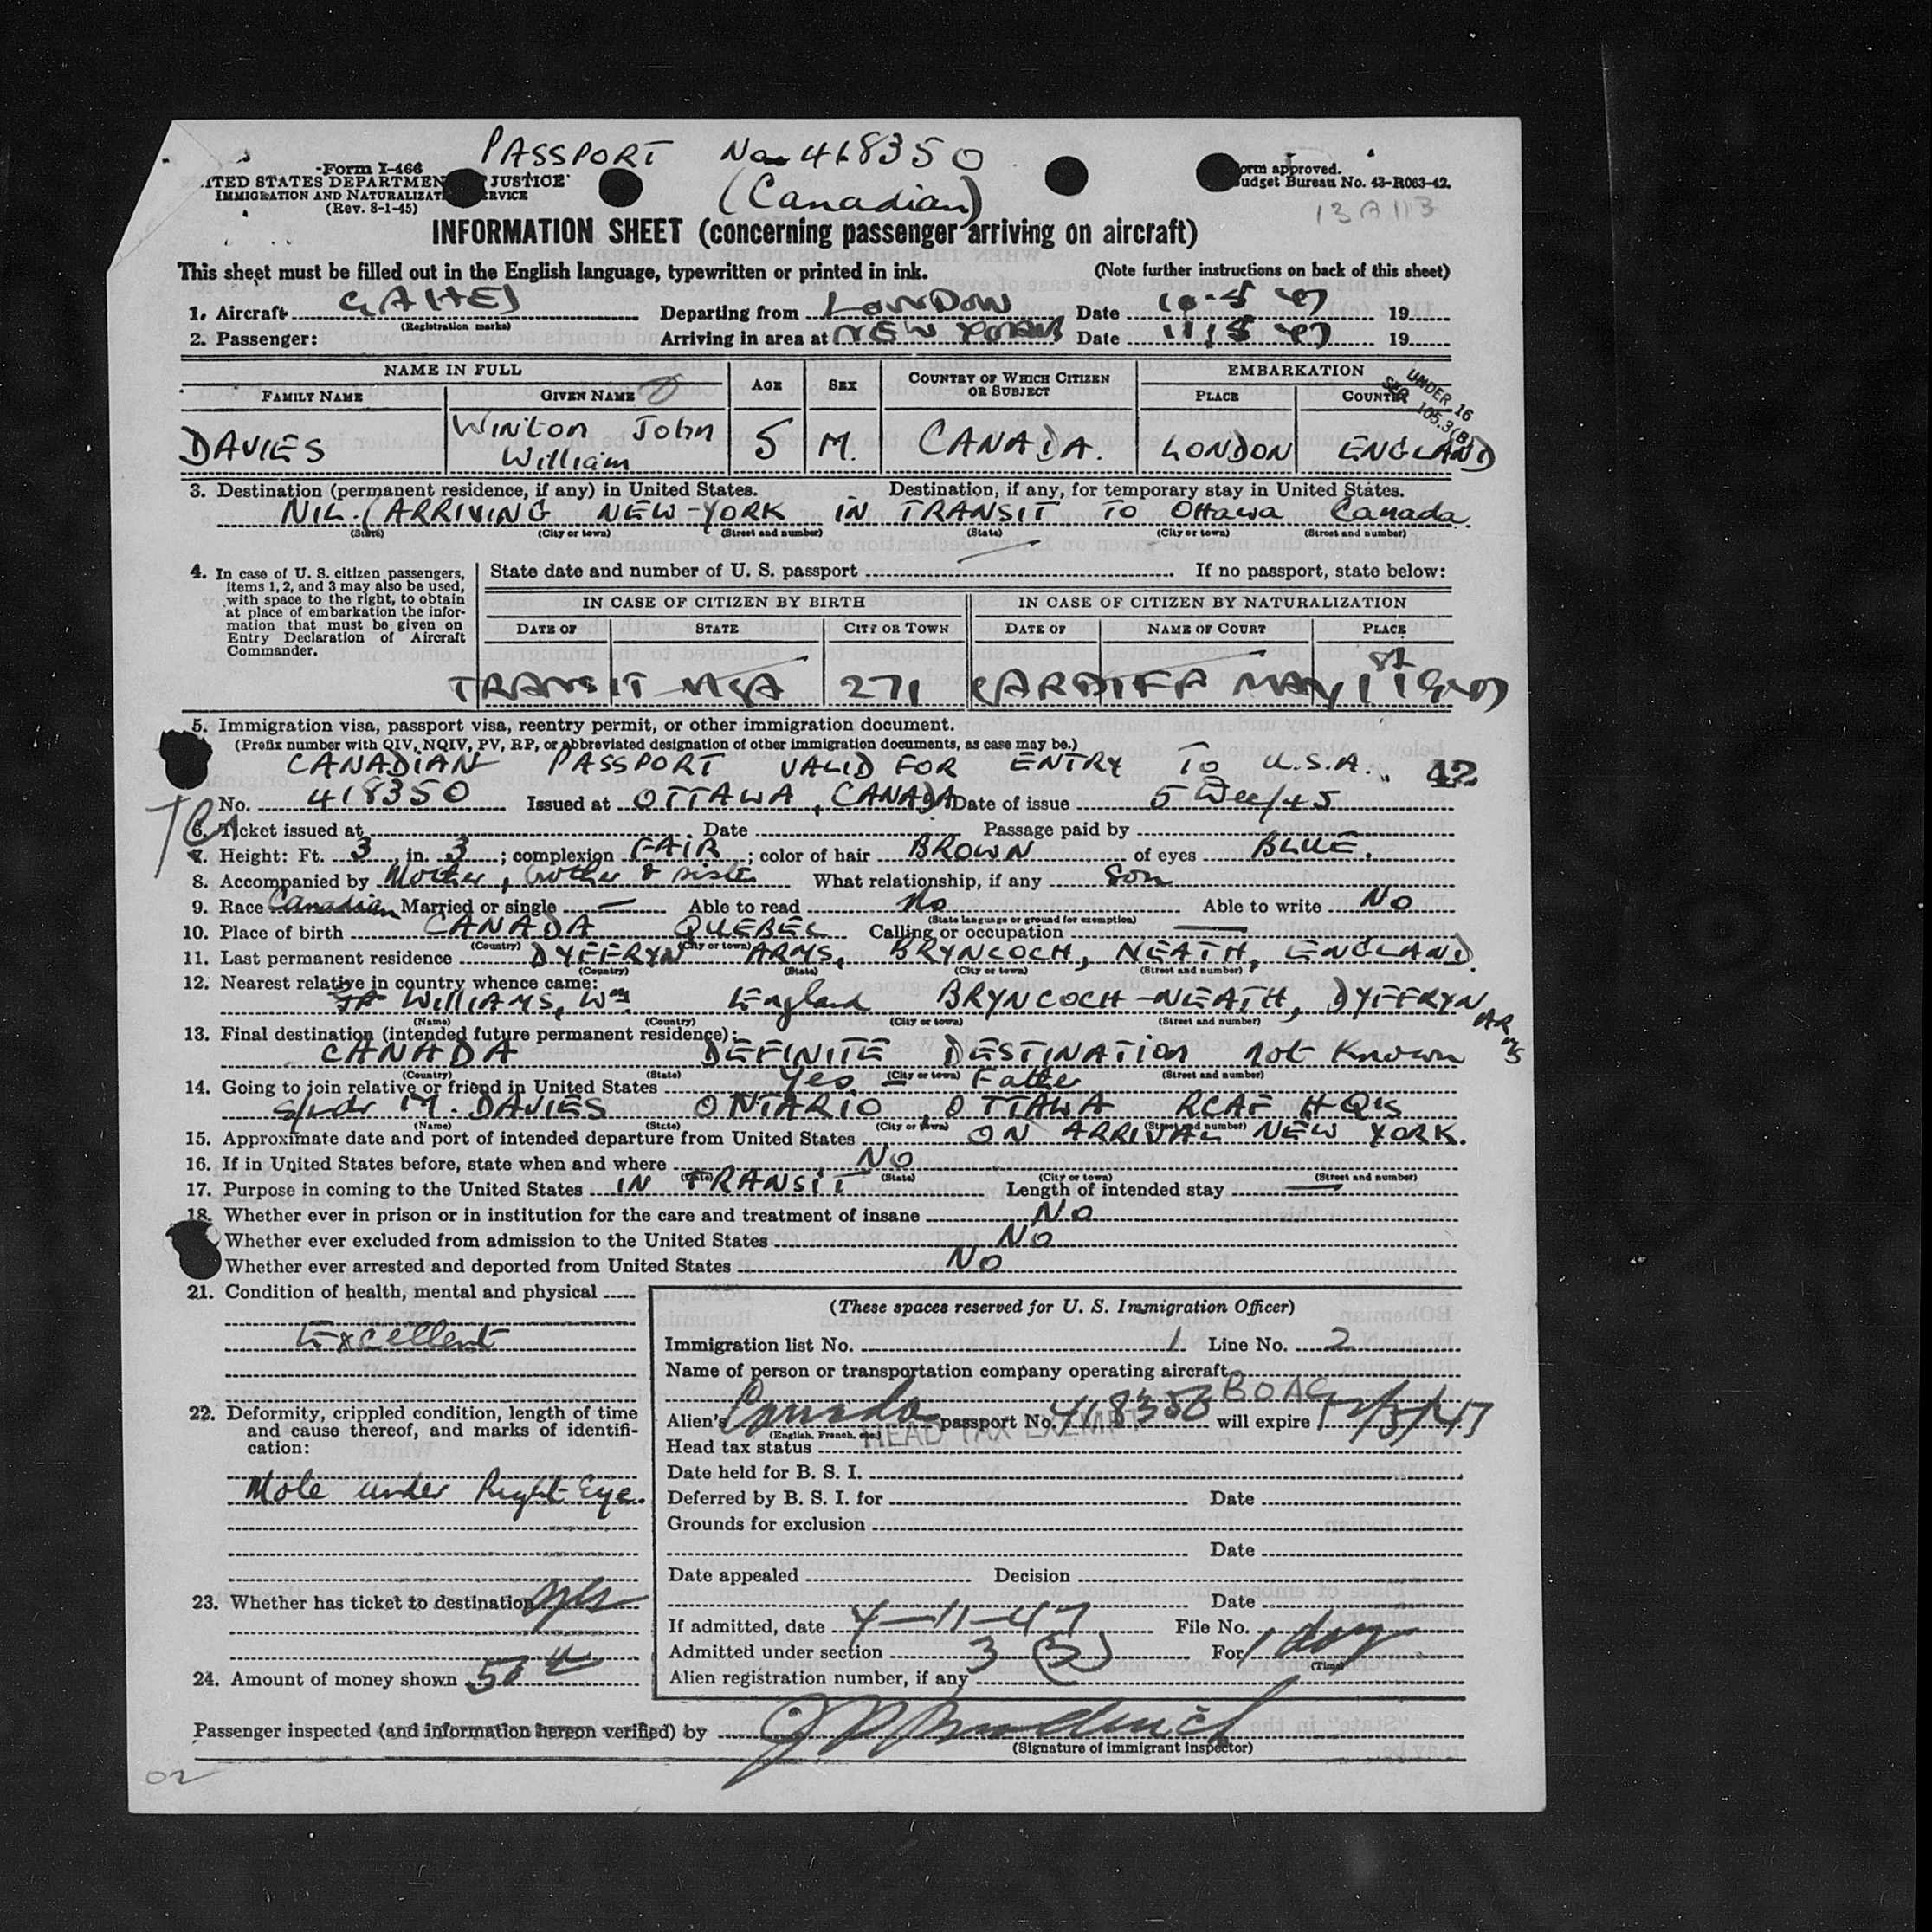 PASSPORT No 418350
Form I-466
UNITED STATES DEPARTMEN JUSTICE
IMMIGRATION AND NATURALIZAT ERVICE
(Rev. 8-1-45)
(Canadian)
orm approved.
udget Bureau No. 43-R063-42.
INFORMATION SHEET (concerning passenger arriving on aircraft)
This sheet must be filled out in the English language, typewritten or printed in ink. (Note further instructions on back of this sheet)
1. Aircraft GAHEJ Departing from LONDON Date 19
(Registration marks)
2. Passenger: Arriving in area at NEW YORK Date 19
NAME IN FULL AGE SEX COUNTRY OF WHICH CITIZEN OR SUBJECT EMBARKATION
FAMILY NAME GIVEN NAME PLACE COUNTRY
UNDER 16
SEC 105.3(B)
DAVIES Winton John William 5 M. CANADA. LONDON ENGLAND
3. Destination (permanent residence, if any) in United States. Destination, if any, for temporary stay in United States.
NIL. (ARRIVING NEW-YORK IN TRANSIT TO Ottawa Canada.
(State) (City or town) (Street and number) (State) (City or town) (Street and number)
4. In case of U. S. citizen passengers, items 1, 2, and 3 may also be used, with space to the right, to obtain at place of embarkation the information that must be given on Entry Declaration of Aircraft Commander.
State date and number of U. S. passport If no passport, state below:
IN CASE OF CITIZEN BY BIRTH IN CASE OF CITIZEN BY NATURALIZATION
DATE OF STATE CITY OR TOWN DATE OF NAME OF COURT PLACE
TRANSIT VISA 271 CARDIFF MAY 1st 1947
5. Immigration visa, passport visa, reentry permit, or other immigration document.
(Prefix number with QIV, NQIV, PV, RP, or abbreviated designation of other immigration documents, as case may be.)
CANADIAN PASSPORT VALID FOR ENTRY TO U.S.A. 42
No. 418350 Issued at OTTAWA, CANADA Date of issue 5 Dec/45
6. Ticket issued at Date Passage paid by
7. Height: Ft. 3, in. 3; complexion FAIR; color of hair BROWN of eyes BLUE.
8. Accompanied by Mother, brother & sister What relationship, if any Son
9. Race Canadian Married or single — Able to read No Able to write No
(State language or ground for exemption)
10. Place of birth CANADA QUEBEC Calling or occupation —
(Country) (City or town)
11. Last permanent residence DYFFRYN ARMS, BRYNCOCH, NEATH, ENGLAND.
(Country) (State) (City or town) (Street and number)
12. Nearest relative in country whence came:
WILLIAMS, Wm. England BRYNCOCH-NEATH, DYFFRYN ARMS
(Name) (Country) (City or town) (Street and number)
13. Final destination (intended future permanent residence):
CANADA DEFINITE DESTINATION not known
(Country) (State) (City or town) (Street and number)
14. Going to join relative or friend in United States Yes - Father
S/Ldr M. DAVIES ONTARIO, OTTAWA RCAF HQ's
(Name) (State) (City or town) (Street and number)
15. Approximate date and port of intended departure from United States ON ARRIVAL NEW YORK.
16. If in United States before, state when and where NO
(State) (City or town) (Street and number)
17. Purpose in coming to the United States IN TRANSIT Length of intended stay —
18. Whether ever in prison or in institution for the care and treatment of insane No
Whether ever excluded from admission to the United States No
Whether ever arrested and deported from United States No
21. Condition of health, mental and physical
Excellent
22. Deformity, crippled condition, length of time and cause thereof, and marks of identification:
Mole under Right Eye.
23. Whether has ticket to destination yes
24. Amount of money shown 50
(These spaces reserved for U. S. Immigration Officer)
Immigration list No. 1 Line No. 2
Name of person or transportation company operating aircraft
BOAC
Alien's Canada passport No. 418350 will expire
(English, French, etc.)
HEAD TAX EXEMPT
Head tax status
Date held for B. S. I.
Deferred by B. S. I. for Date
Grounds for exclusion
Date
Date appealed Decision
Date
If admitted, date File No.
Admitted under section 3 (3) For 1 day
(Time)
Alien registration number, if any
Passenger inspected (and information hereon verified) by
(Signature of immigrant inspector)
02